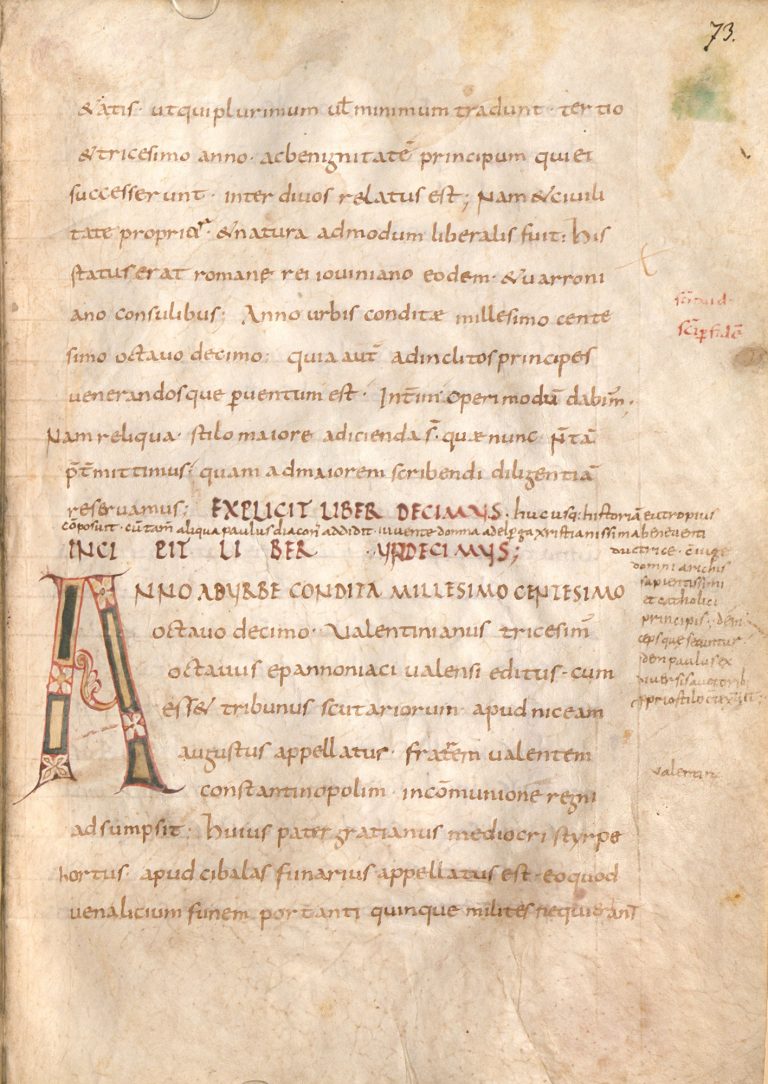 73.
&ætis · ut qui plurimum ut̄ minimum tradunt · tertio
& tricesimo anno · ac benignitatē principum qui ei
successerunt · inter diuos relatus est; Nam & ciuili
tate propriā · & natura admodum liberalis fuit: his
status erat romane rei iouiniano eodem · & uarroni
ano consulibus; Anno urbis conditæ millesimo cente
simo octauo decimo; quia aut̄ ad inclitos principes
venerandosque ꝑuentum est · Int̄im operi modū dabim̄;
Nam reliqua · stilo maiore adicienda s̄ · quæ nunc n̄ tā
p̄t̄mittimus · quam ad maiorem scribendi diligentiā
reseruamus; EXPLICIT LIBER DECIMVS · hucusq; historiā eutropius
cōposuit · cui tam̄ aliqua paulus diacon̄ addidit · iuuente donna adelperga xristianissima beneuenti
INCIPIT LIBER VNDECIMVS; ductrice · coniuge
domni arichis
sapientissimi
et catholici
principis; dein
ANNO AB VRBE CONDITA MILLESIMO CENTESIMO
octauo decimo · Valentinianus tricesim̄
octauus e pannoniaci ualensi editus · cum
ess& tribunus scutariorum apud niceam
augustus appellatus · fratrem ualentem
constantinopolim · in cōmunione regni
adsumpsit; Huius pater gratianus mediocri styrpe
hortus · apud cibalas funarius appellatus est · eo quod
uenalicium funem portanti quinque milites nequierant
cepsque sequntur
idem paulus ex
diuersis auctorib
ꝓprio stilo
valentin